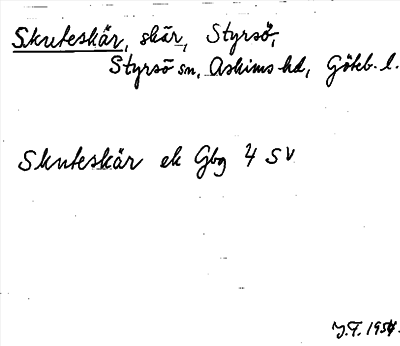 Skuteskär, skär, Styrsö,
Styrsö sn, Askims hd, Göteb. l.
Skuteskär ek Gbg 4 SV
J.T. 1954.